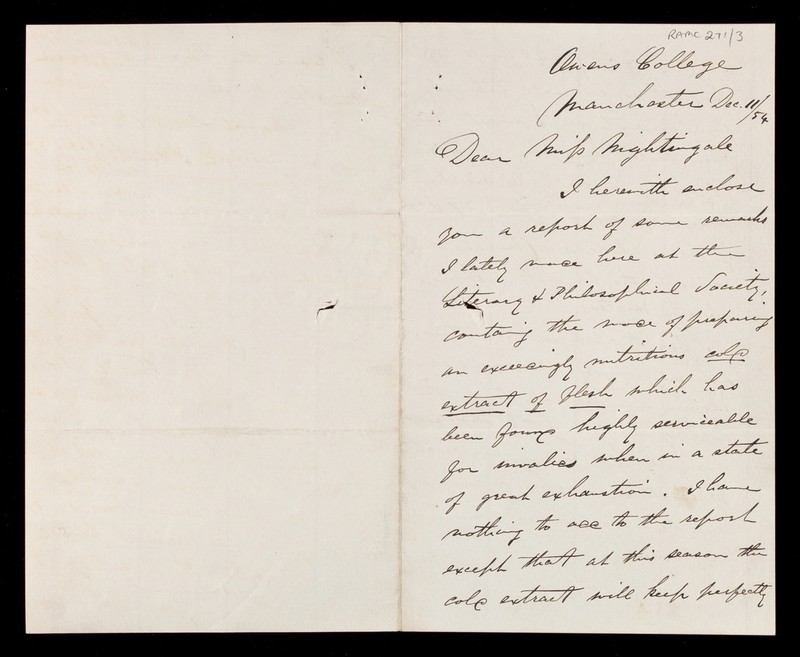 RAMC 271/3
Owens College
Manchester Dec. 11/54
Dear Miss Nightingale
I herewith enclose
you a report of some remarks
I lately made here at the
Literary & Philosophical Society,
containing the mode of preparing
an exceedingly nutritious cold
extract of flesh which has
been found highly serviceable
for invalids when in a state
of great exhaustion. I have
nothing to add to the report
except that at this season the
cold extract will keep perfectly